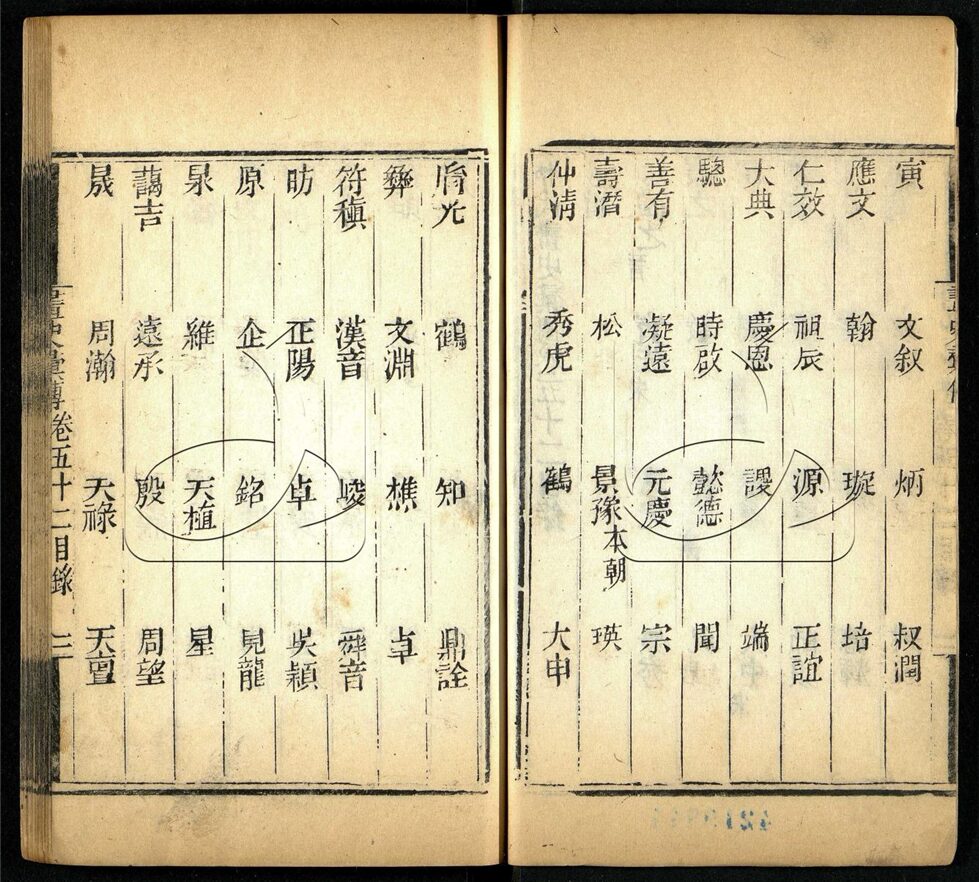 寅 文叙 炳 叔潤
應文 翰 璇 培
仁效 祖辰 源 正誼
大典 慶恩 謖 端
驄 時啟 懿德 聞
善有 凝遠 元慶 宗
壽潛 松 景豫本朝 瑛
仲淸 秀虎 鶴 大申
胤光 鶴 知 鼎詮
彝 文淵 樵 卓
符稹 漢音 峻 舜音
昉 正陽 卓 吳穎
原 企 銘 見龍
泉 維 天植 星
藹吉 遠承 殷 周望
晟 周瀚 天祿 天亶
畫史彙傳卷五十二目錄 三